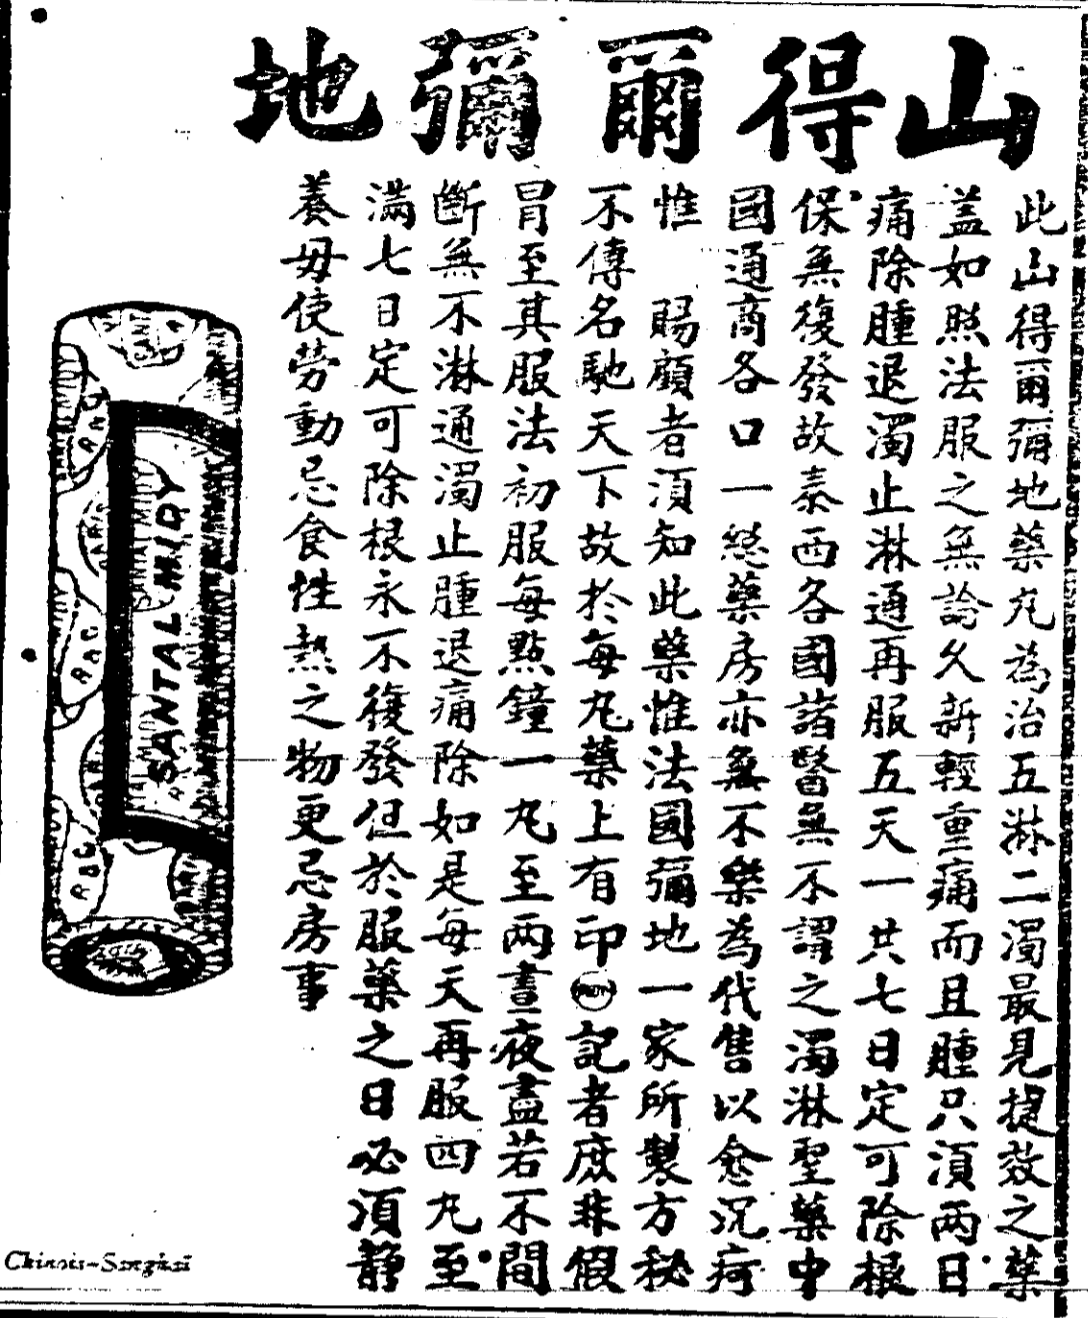 山得爾彌地
此山得爾彌地藥丸為治五淋二濁最見捷效之藥
蓋如照法服之無論久新輕重痛而且腫只須兩日
痛除腫退濁止淋通再服五天一共七日定可除根
保無復發故泰西各國諸醫無不謂之濁淋聖藥中
國通商各口一慫藥房亦無不樂為代售以愈沉疴
惟 賜顧者須知此藥惟法國彌地一家所製方秘
不傳名馳天下故於每丸藥上有印MIDY記者庶非假
冒至其服法初服每點鐘一丸至兩晝夜盡若不間
斷無不淋通濁止腫退痛除如是每天再服四丸至
滿七日定可除根永不復發但於服藥之日必須靜
養毋使勞動忌食性熱之物更忌房事
SANTAL MIDY
Chinois-Sanghai